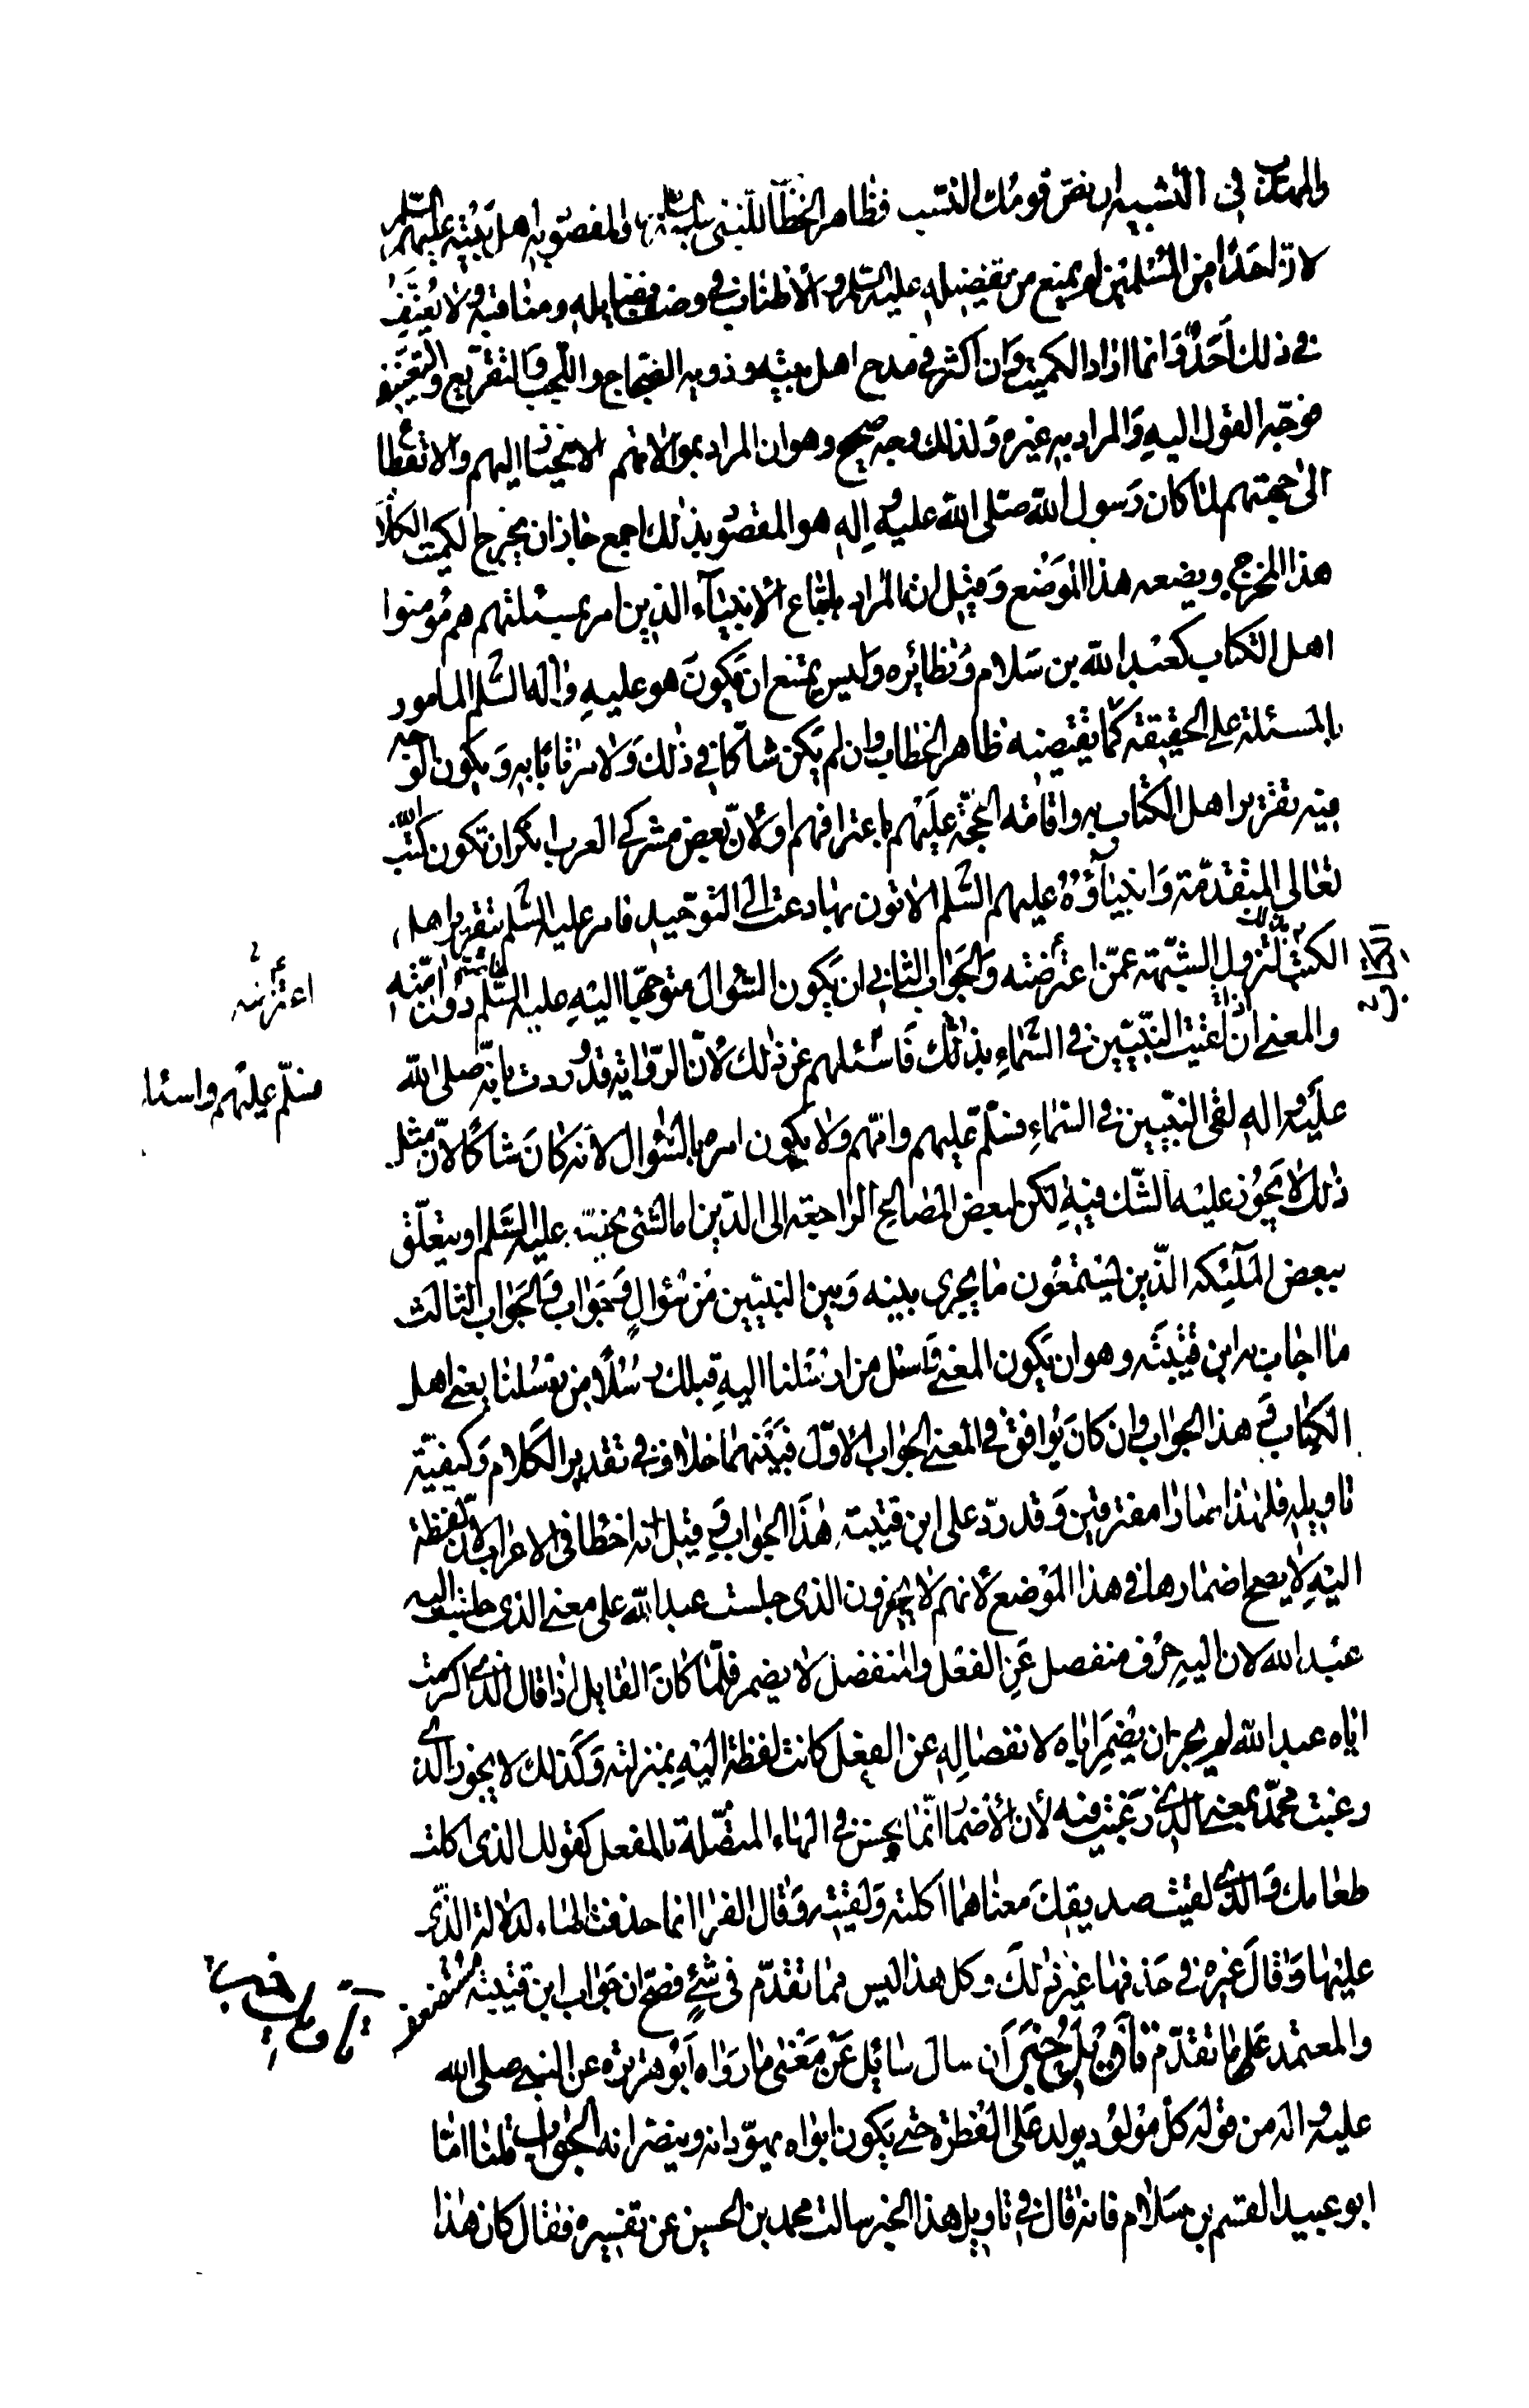 والمهذب في النسبة ان نص قومك النسب فظاهر الخطاب للنبي عليه السلم والمقصود به اهل بيته عليهم السلم
لان احدا من المسلمين لم يمنع من تفضيله عليه السلم والاطناب في وصف فضايله ومناقبه ولا يعنف
في ذلك احد وانما اراد الكميت وان اكثر في مدح اهل بيته وذويه الضجاج واللجب والتقريع والتعنيف
فوجه القول اليه والمراد به غيره ولذلك وجه صحيح وهو ان المراد بموالاتهم الانحياز اليهم والانقطاع
الى جهتهم لما كان رسول الله صلى الله عليه واله هو المقصود بذلك اجمع جاز ان يخرج الكميت الكلام
هذا المخرج ويضعه هذا الموضع وقيل ان المراد باتباع الانبيآء الذين امر بمسئلتهم هم مؤمنوا
اهل الكتاب كعبد الله بن سلام ونظائره وليس يمتنع ان يكون هو عليه واله السلم المامور
بالمسئلة على الحقيقة كما يقتضيه ظاهر الخطاب وان لم يكن شاكا في ذلك ولا مرتابا به ويكون الوجه
فيه تقرير اهل الكتاب به واقامة الحجة عليهم باعترافهم او لان بعض مشركي العرب انكر ان تكون كتب الله
تعالى المتقدمة وانبيآؤه عليهم السلم الاتون بها دعت الى التوحيد فامر عليه السلم بتقرير اهل
الكتاب بذلك لتزول الشبهة عمن اعترضته والجواب الثاني ان يكون السؤال متوجها اليه عليه السلم دون امته
والمعنى اذا لقيت النبيين في السماء بذلك فاسئلهم عن ذلك لان الرواية قد وردت بانه صلى الله
عليه واله لقى النبيين في السماء فسلم عليهم وامهم ولا يكون امره بالسؤال لانه كان شاكا لان مثل
ذلك لا يجوز عليه الشك فيه لكن لبعض المصالح الراجعة الى الدين اما لشئ يخصه عليه السلم او يتعلق
ببعض الملئكة الذين يستمعون ما يجري بينه وبين النبيين من سؤال وجواب والجواب الثالث
ما اجاب به ابن قتيبة وهو ان يكون المعنى واسئل من ارسلنا اليه قبلك رسلا من رسلنا يعني اهل
الكتاب وهذا الجواب وان كان يوافق في المعنى الجواب الاول فبينهما خلاف في تقدير الكلام وكيفية
تاويله فلهذا صارا مفترقين وقد رد على ابن قتيبة هذا الجواب وقيل انه اخطا في الاعراب لان لفظة
اليه لا يصح اضمارها في هذا الموضع لانهم لا يجيزون الذى جلست عبد الله على معنى الذى جلست اليه
عبد الله لان اليه حرف منفصل عن الفعل والمنفصل لا يضمر فلما كان القايل اذا قال الذى اكرمت
اياه عبد الله لم يجز ان يضمر اياه لانفصاله عن الفعل كانت لفظة اليه بمنزلته وكذلك لا يجوز الذى
رغبت محمد بمعنى الذى رغبت فيه لان الاضمار انما يحسن في الهاء المتصلة بالفعل كقولك الذى اكلت
طعامك والذى لقيت صديقك معناهما اكلته ولقيته وقال الفرا انما حذفت الهاء لدلالة الذى
عليها وقال غيره في حذفها غير ذلك وكل هذا ليس مما تقدم في شئ فصح ان جواب ابن قتيبة مستضعف
والمعتمد على ما تقدم تاويل خبر ان سال سائل عن معنى ما رواه ابو هريرة عن النبي صلى الله
عليه واله من قوله كل مولود يولد على الفطرة حتى يكون ابواه يهودانه وينصرانه الجواب قلنا اما
ابو عبيد القسم بن سلام فانه قال في تاويل هذا الخبر سالت محمد بن الحسين عن تفسيره فقال كان هذا
اعترضه
فسلم عليهم واسئل
تاويل خبر